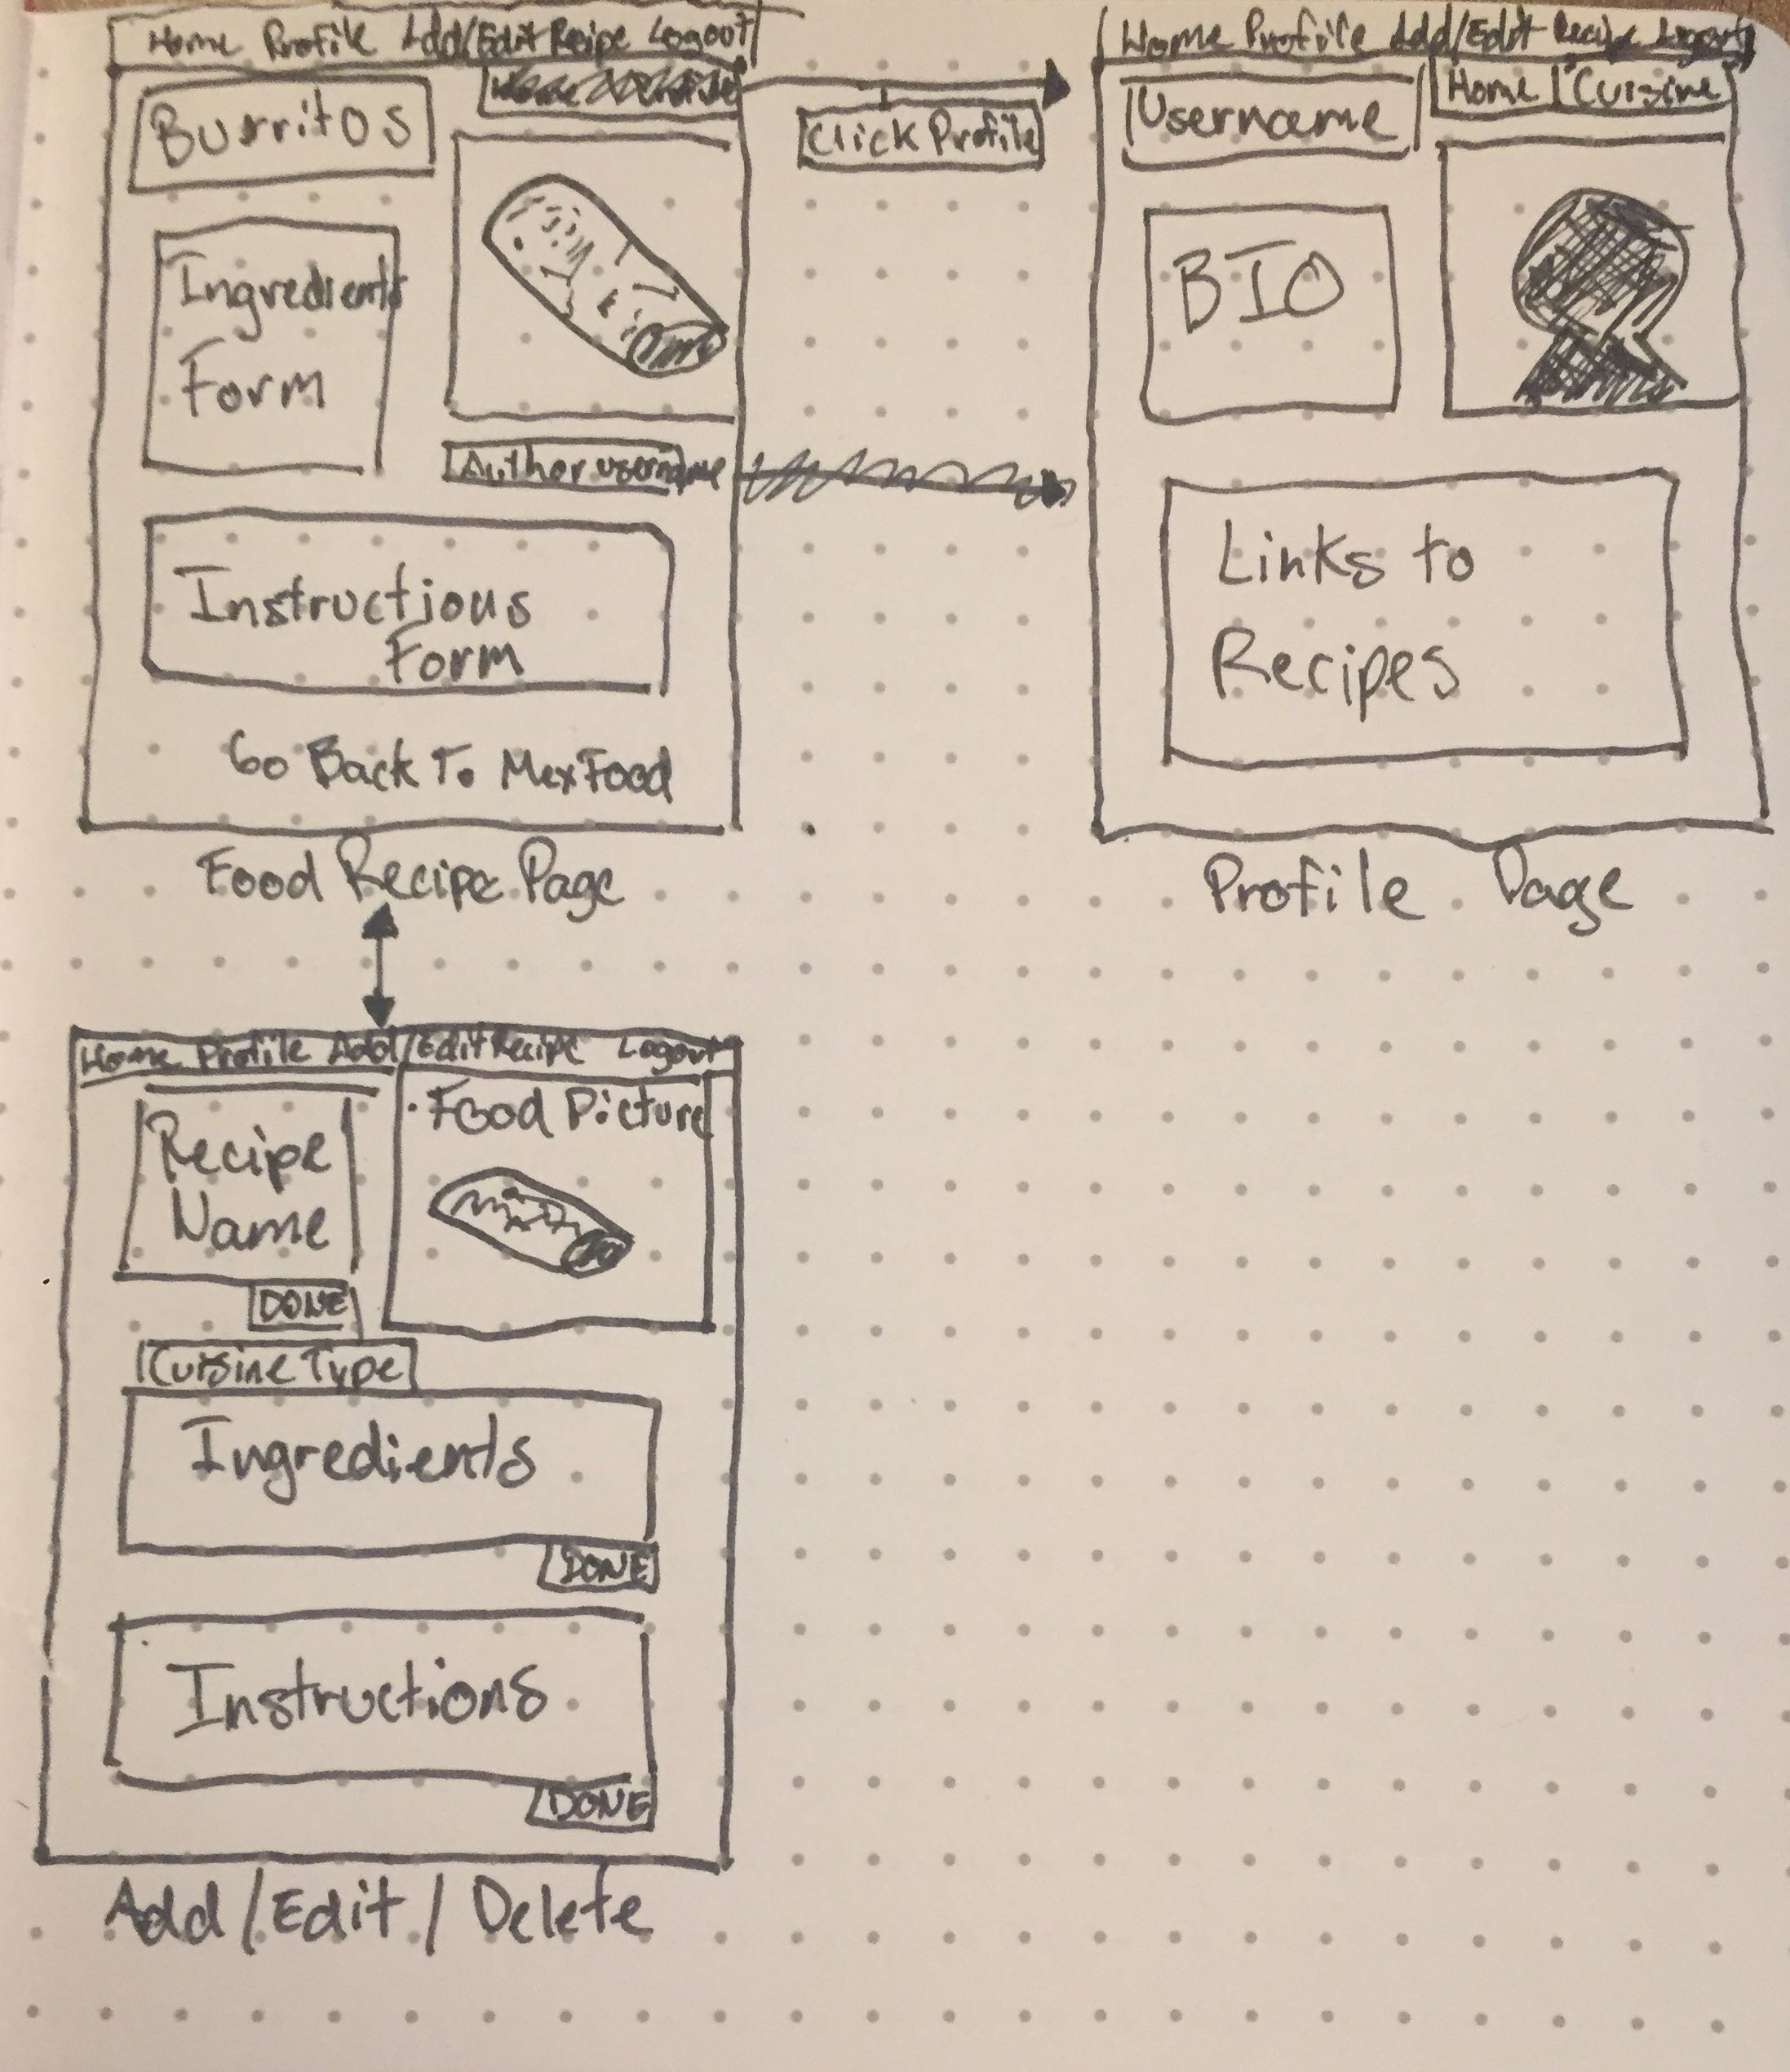 Home Profile Add/Edit Recipe Logout
Burritos
Ingredients
Form
Author username
Instructions
Form
Go Back To MexFood
Food Recipe Page
Click Profile
Home Profile Add/Edit Recipe Logout
Username
Home Cuisine
BIO
Links to
Recipes
Profile Page
Home Profile Add/Edit Recipe Logout
Recipe
Name
Food Picture
DONE
Cuisine Type
Ingredients
DONE
Instructions
DONE
Add/Edit/Delete